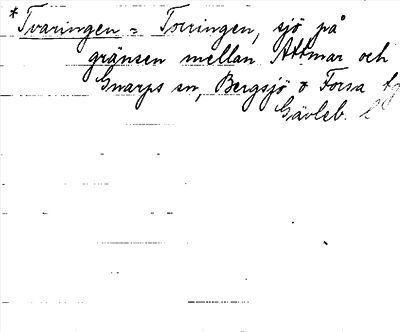 *Tvaringen = Torringen, sjö på
gränsen mellan Attmar och
Gnarps sn, Bergsjö o Forsa tg
Gävleb. l